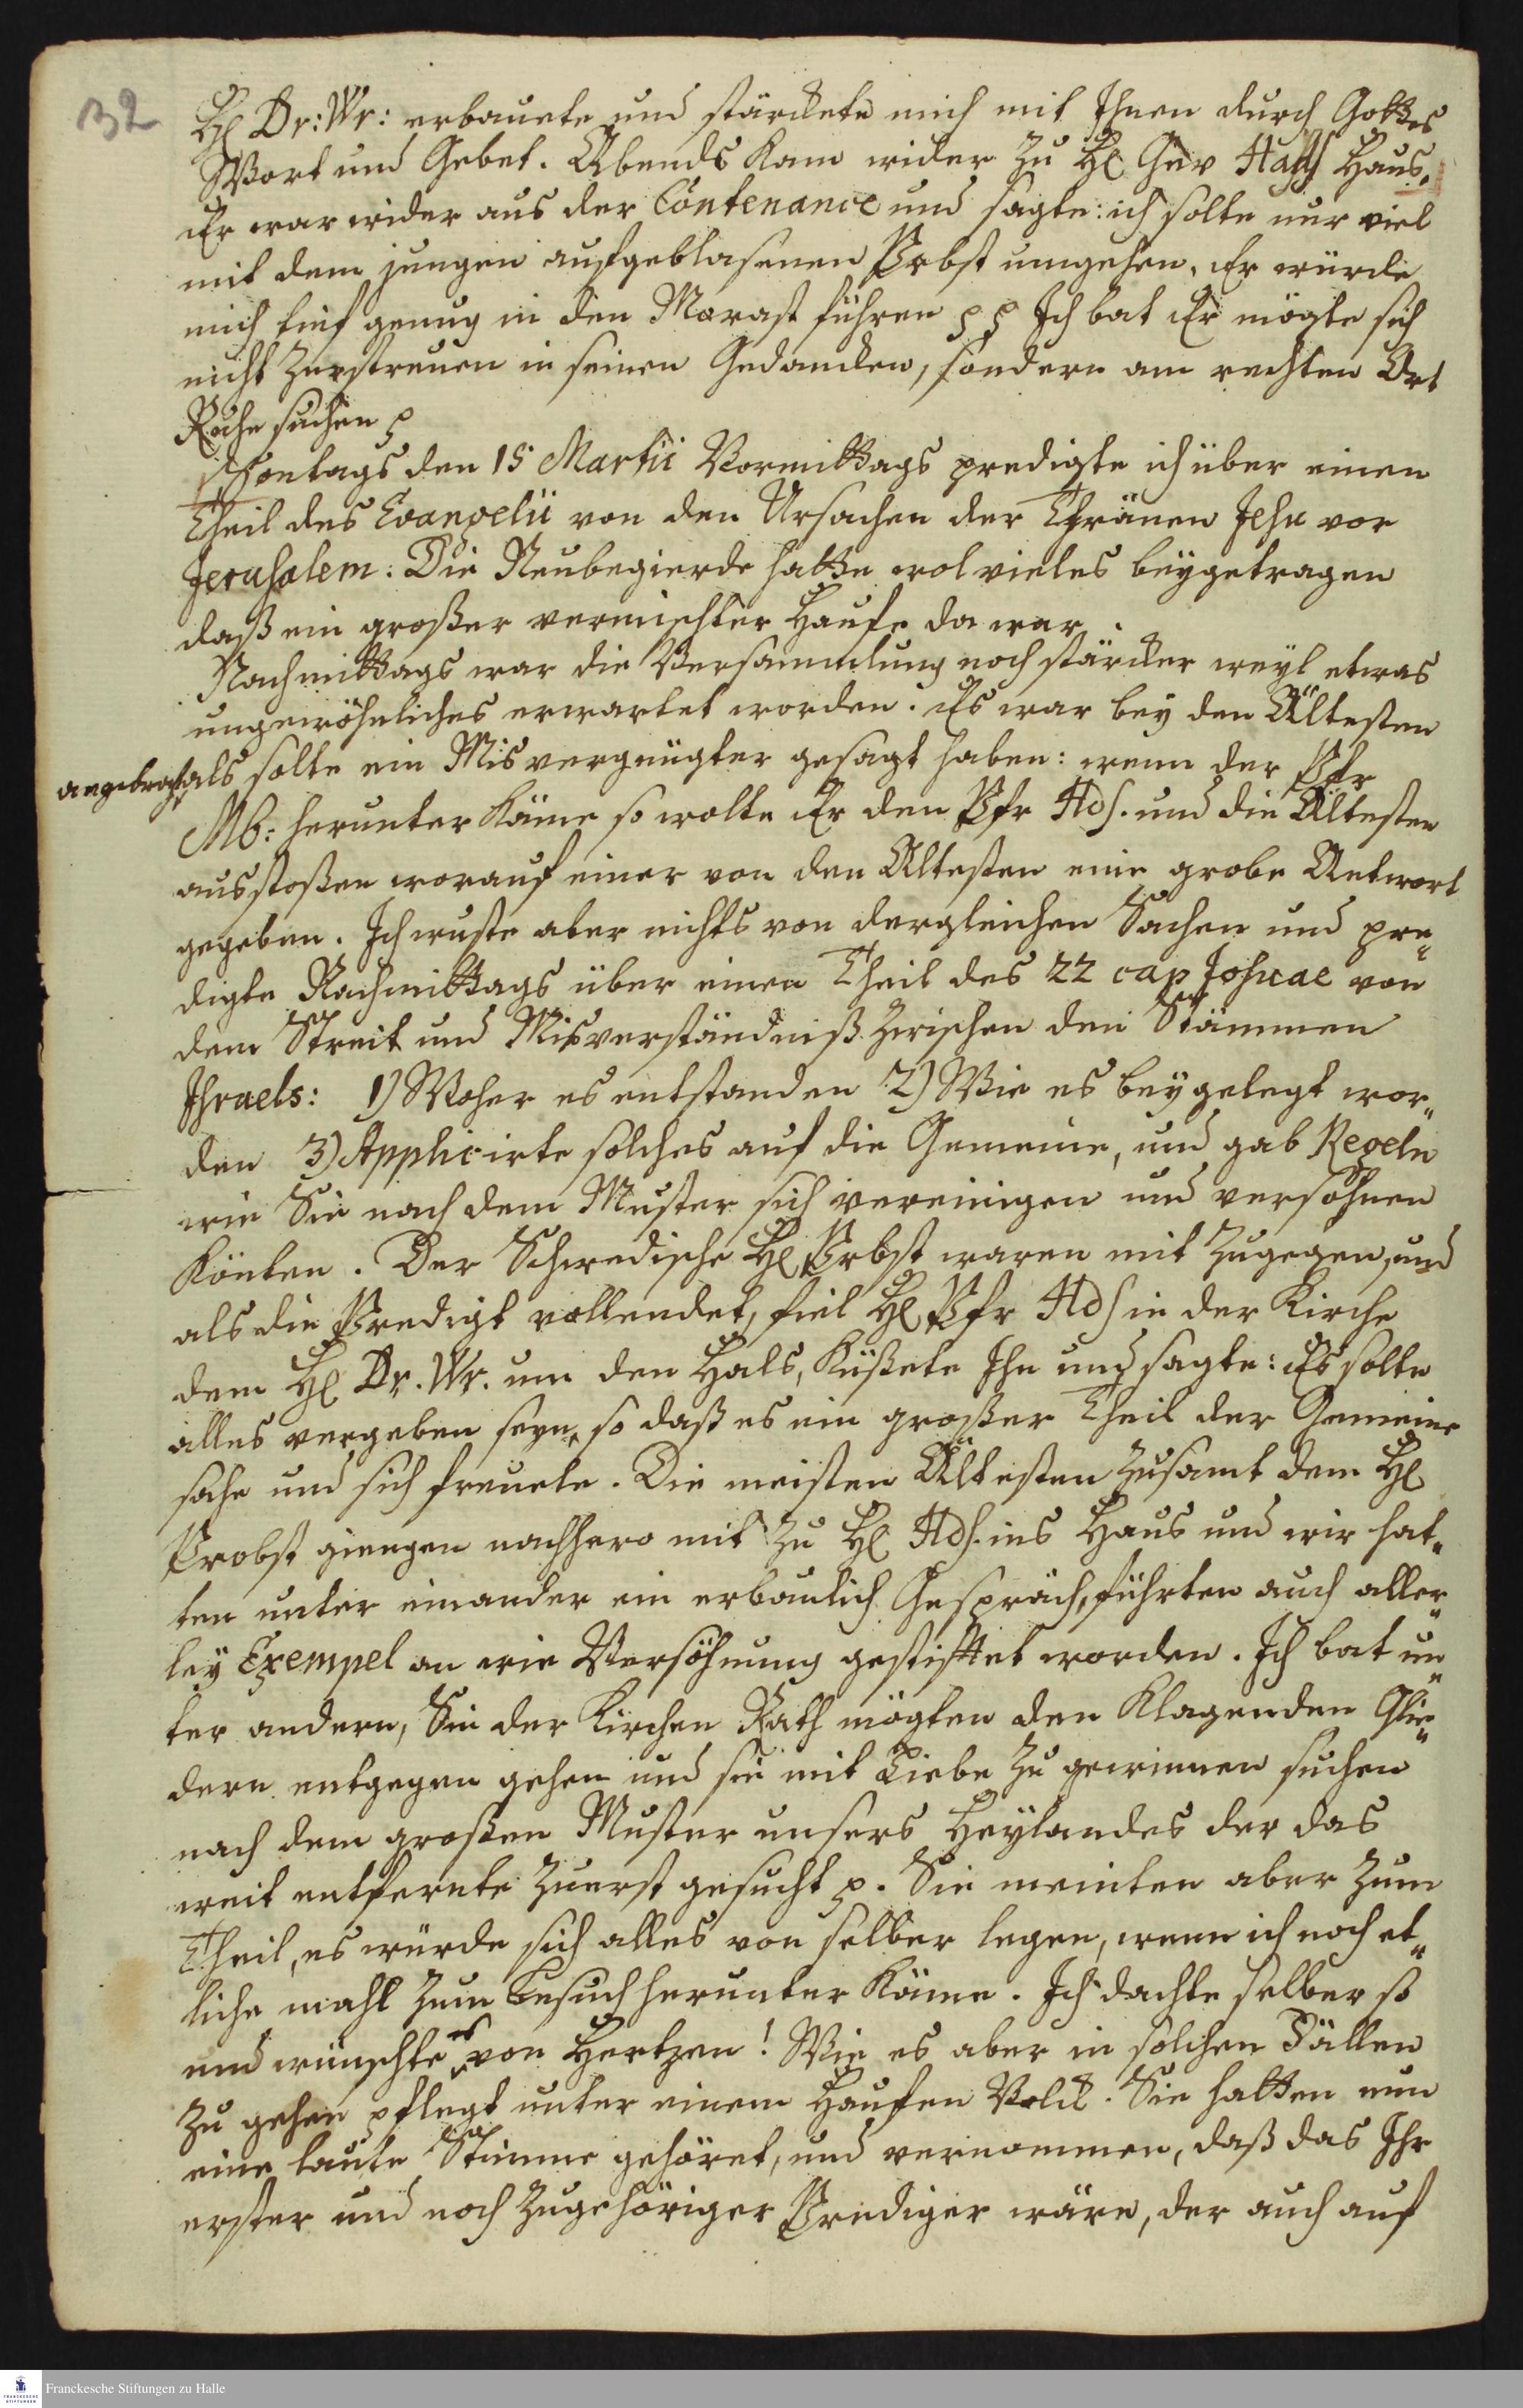 32
H Dr: Wr: erbauete und stärckete mich mit Ihnen durch Gottes
Wort und Gebet. Abends kam wider zu H Haus.
Er war wider aus der Contenance und sagte: ich solte nur viel
mit dem jungen aufgeblasenen Probst umgehen, Er würde
mich tief genug in den Morast führen p p Ich bat Er mögte sich
nicht zerstreuen in seinen Gedancken, sondern am rechten Ort
Ruhe suchen p
Sontags den 15 Martii Vormittags predigte ich über einen
Theil des Evangelii von den Ursachen der Thränen Jesu vor
Jerusalem: Die Neubegierde hatte wol vieles beygetragen
daß ein großer vermischter Haufe da war.
Nachmittags war die Versammlung noch stärcker weyl etwas
ungewöhnliches erwartet worden. Es war bey den Ältesten
angebracht, als solte ein Misvergnügter gesagt haben: wenn der Pfr
Mb: herunter käme so wolte Er den Pfr Hds. und die Ältesten
ausstoßen worauf einer von den Ältesten eine grobe Antwort
gegeben. Ich wuste aber nichts von dergleichen Sachen und pre„
digte Nachmittags über einen Theil des 22 cap Josuae von
dem Streit und Misverständniß zwischen den Stämmen
Israels: 1) Woher es entstanden 2) Wie es beygelegt wor„
den 3) Applicirte solches auf die Gemeine, und gab Regeln
wie Sie nach dem Muster sich vereinigen und versöhnen
könten. Der Schwedische H Probst waren mit zugegen, und
als die Predigt vollendet, fiel H Pfr Hds in der Kirche
dem H Dr. Wr. um den Hals, küßete Ihn und sagte: Es solte
alles vergeben seyn, so daß es ein großer Theil der Gemeine
sahe und sich freuete. Die meisten Ältesten zusamt dem H
Probst giengen nachhero mit zu H Hds. ins Haus und wir hat„
ten unter einander ein erbaulich Gespräch, führten auch aller„
ley Exempel an wie Versöhnung gestiftet worden. Ich bat un„
ter andern, Sie der Kirchen Rath mögten den klagenden Glie„
dern entgegen gehen und sie mit Liebe zu gewinnen suchen
nach dem großen Muster unsers Heylandes der das
weit entfernte zuerst gesucht p. Sie meinten aber zum
Theil, es würde sich alles von selber legen, wenn ich noch et„
liche mahl zum Besuch herunter käme. Ich dachte selber so
und wünschte es von Hertzen! Wie es aber in solchen Fällen
zu gehen pflegt unter einem Haufen Volck. Sie hatten nun
eine laute Stimme gehöret, und vernommen, daß das Ihr
erster und noch zugehöriger Prediger wäre, der auch auf
Franckesche Stiftungen zu Halle